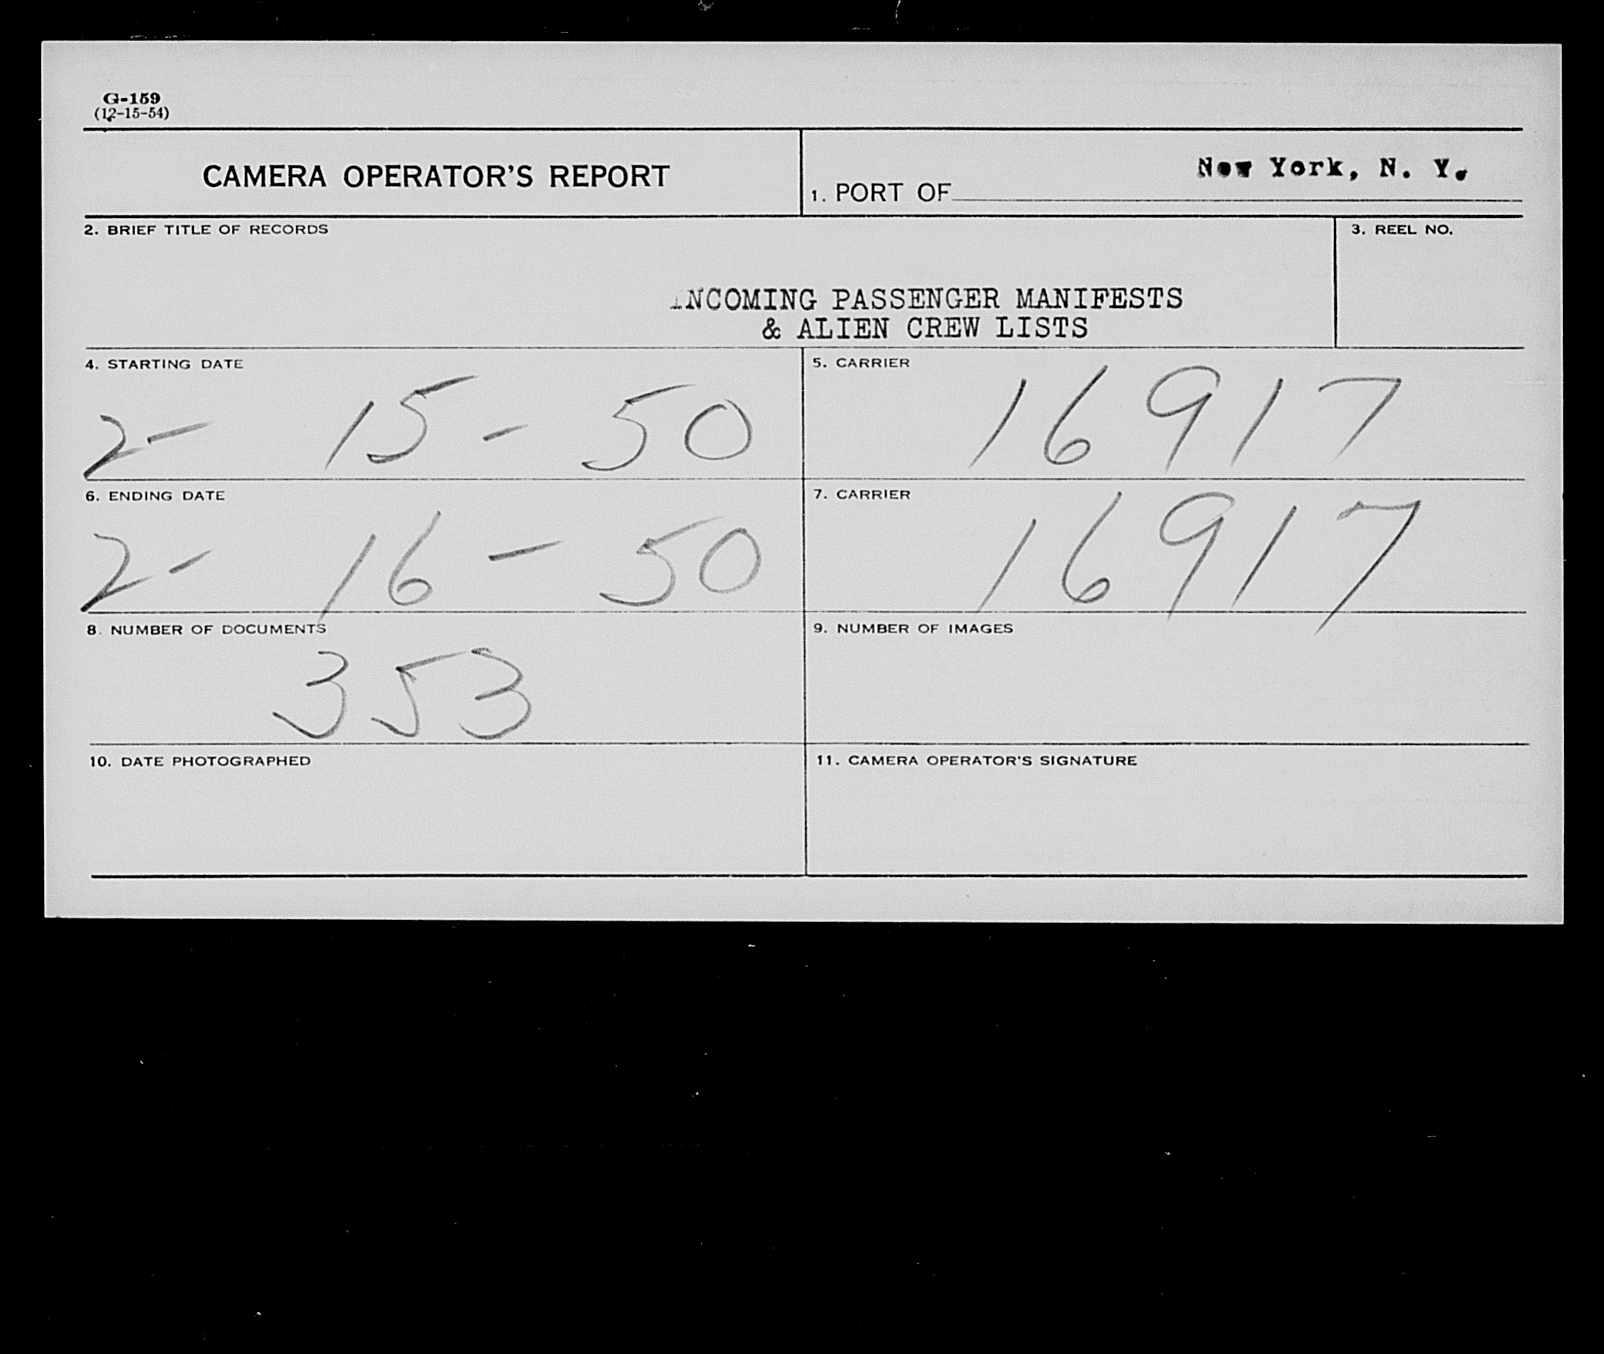 G-159
(12-15-54)
CAMERA OPERATOR'S REPORT
1. PORT OF New York, N. Y.
2. BRIEF TITLE OF RECORDS
3. REEL NO.
INCOMING PASSENGER MANIFESTS
& ALIEN CREW LISTS
4. STARTING DATE
5. CARRIER
2- 15-50
16917
6. ENDING DATE
7. CARRIER
2- 16-50
16917
8. NUMBER OF DOCUMENTS
9. NUMBER OF IMAGES
353
10. DATE PHOTOGRAPHED
11. CAMERA OPERATOR'S SIGNATURE